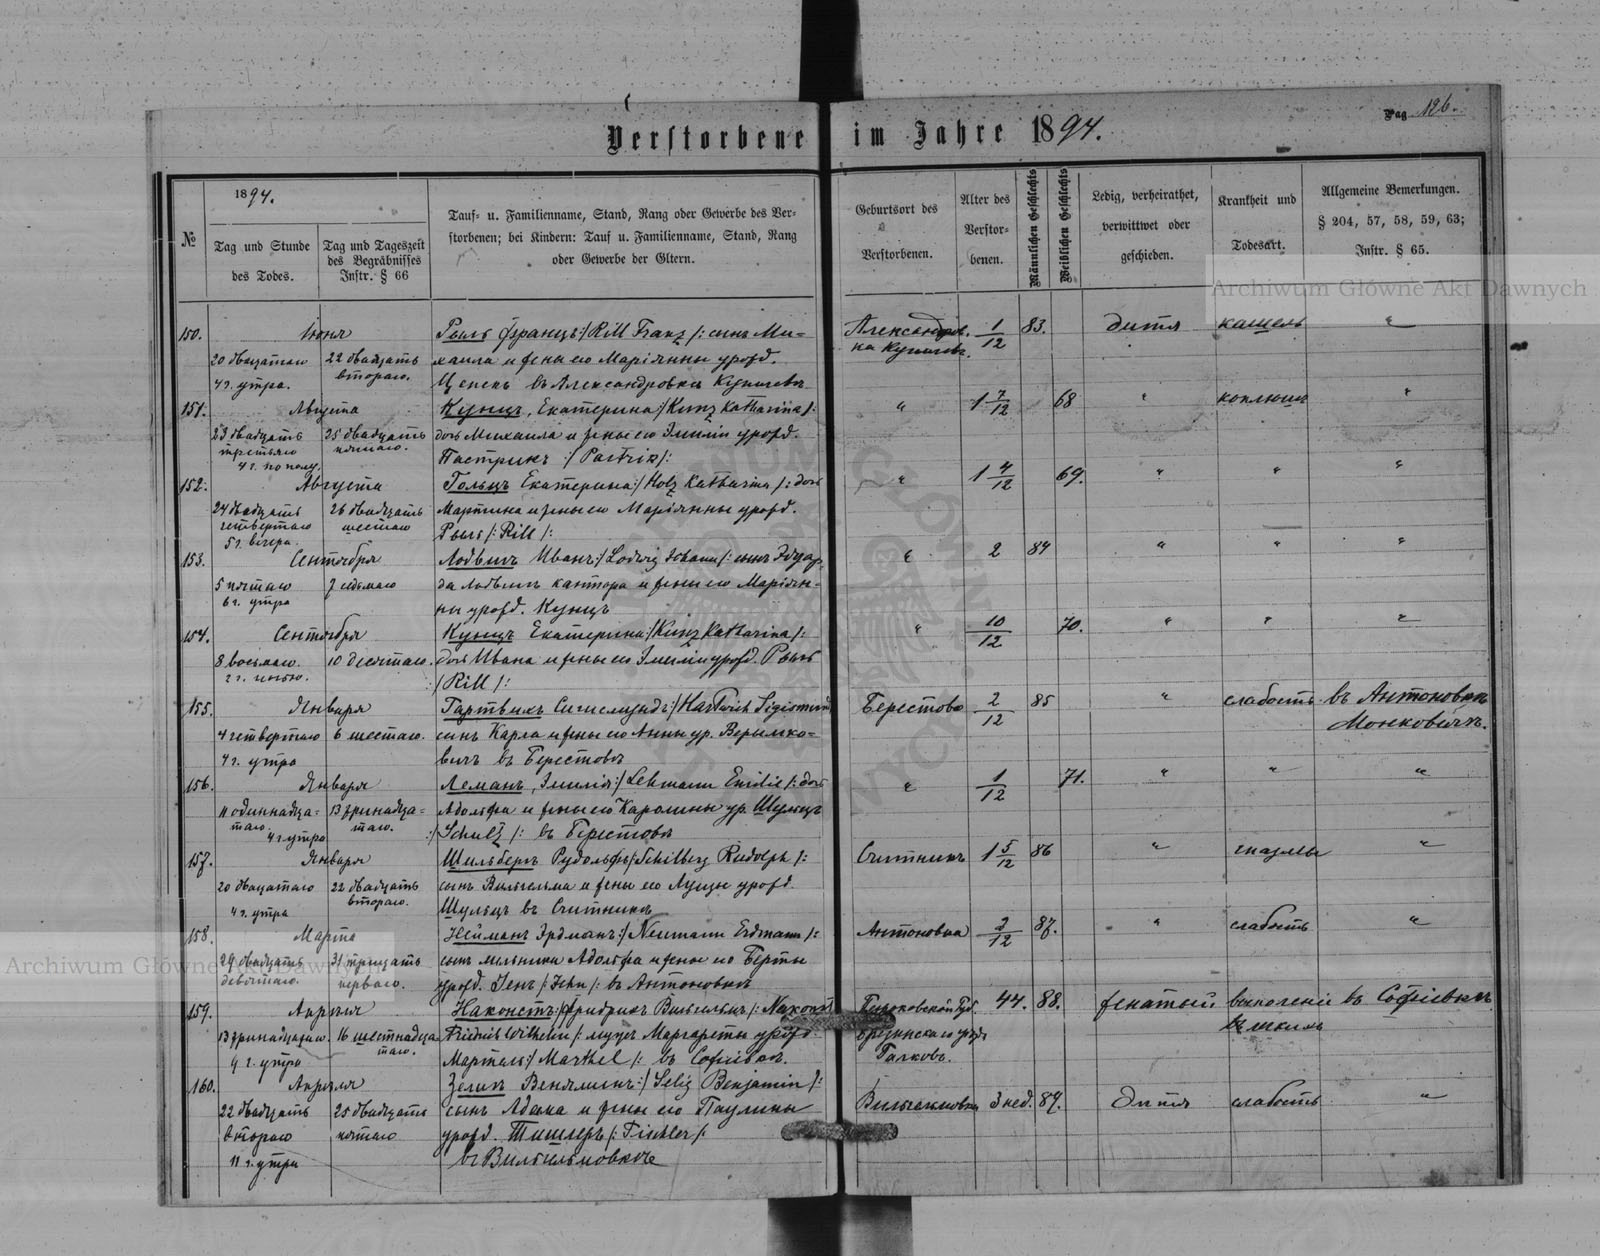 Pag 126.
Verstorbene im Jahre 1894.
№
1894.
Tag und Stunde
des Todes.
Tag und Tageszeit
des Begräbnisses
Instr. § 66
Tauf- u. Familienname, Stand, Rang oder Gewerbe des Ver-
storbenen; bei Kindern: Tauf u. Familienname, Stand, Rang
oder Gewerbe der Eltern.
Geburtsort des
Verstorbenen.
Alter des
Verstor-
benen.
Männlichen Geschlechts
Weiblichen Geschlechts
Ledig, verheirathet,
verwittwet oder
geschieden.
Krankheit und
Todesart.
Allgemeine Bemerkungen.
§ 204, 57, 58, 59, 63;
Instr. § 65.
Archiwum Główne Akt Dawnych
150. Іюня Рылъ Францъ /: Rill Franz /: сынъ Ми- 1/12 83. дитя кашель "
20 двадцатаго 22 двадцать хаила и жены его Маріянны урожд.
4 г. утра. втораго. въ Александровка
151. Августа Кунцъ, Екатерина /: Kunz Katharina /: " 1 7/12 68 " коклюшъ "
23 двадцать 25 двадцать дочь Михаила и жены его Эмиліи урожд.
третьяго пятаго.
4 г. по полу. Пастрикъ /: Pastrik /:
152. Августа Гольцъ Екатерина /: Holz Katharina /: дочь " 1 4/12 69. " " "
24 двадцать 26 двадцать Мартина и жены его Маріянны урожд.
четвертаго шестаго
5 г. вечера. Рылъ /: Rill /:
153. Сентября Лодвигъ Иванъ /: Lodwig Johann /: сынъ Эдуар- " 2 84 " " "
5 пятаго 7 седьмаго да Лодвигъ кантора и жены его Маріян-
6 г. утра ны урожд. Кунцъ
154. Сентября Кунцъ Екатерина /: Kunz Katharina /: " 10/12 70. " " "
8 восьмаго. 10 десятаго. дочь Ивана и жены его Эмиліи урожд. Рылъ
2 г. ночью. /: Rill /:
155. Января Гартвихъ Сигисмундъ /: Hartwich Sigismund Берестово 2/12 85 " слабость въ Антоновкѣ
4 четвертаго 6 шестаго. сынъ Карла и жены его Анны ур.
4 г. утра въ Берестовѣ
156. Января Леманъ, Эмилія /: Lehmann Emilie /: дочь " 1/12 71. " " "
11 одиннадца- 13 тринадца- Адольфа и жены его Каролины ур. Шульцъ
таго. таго.
4 г. утра /: Schultz /: въ Берестовѣ
157. Января Шильбергъ Рудольфъ /: Schilberg Rudolph /: 1 5/12 86 " "
20 двадцатаго 22 двадцать сынъ Вильгельма и жены его Луизы урожд.
втораго.
4 г. утра Шульцъ въ
158. Марта Нейманъ Эрдманъ /: Neumann Erdmann /: Антоновка 2/12 87. " слабость "
29 двадцать 31 тридцать сынъ мельника Адольфа и жены его Берты
девятаго. перваго. урожд. Іенъ /: Jehn /: въ Антоновкѣ
Archiwum Główne Akt Dawnych
159. Апрѣля Фридрихъ Вильгельмъ /: 44. 88. женатый въ Софіевкѣ
13 тринадцатаго. 16 шестнадца- Friedrich Wilhelm /: мужъ Маргареты урожд.
таго.
4 г. утра /: Markel /: въ Софіевкѣ.
160. Апрѣля Зелигъ Веніаминъ /: Selig Benjamin /: Вильгельмовка 3 нед. 89. дитя слабость "
22 двадцать 25 двадцать сынъ Адама и жены его Паулины
втораго пятаго урожд. Тишлеръ /: Tischler /:
11 г. утра въ Вильгельмовкѣ